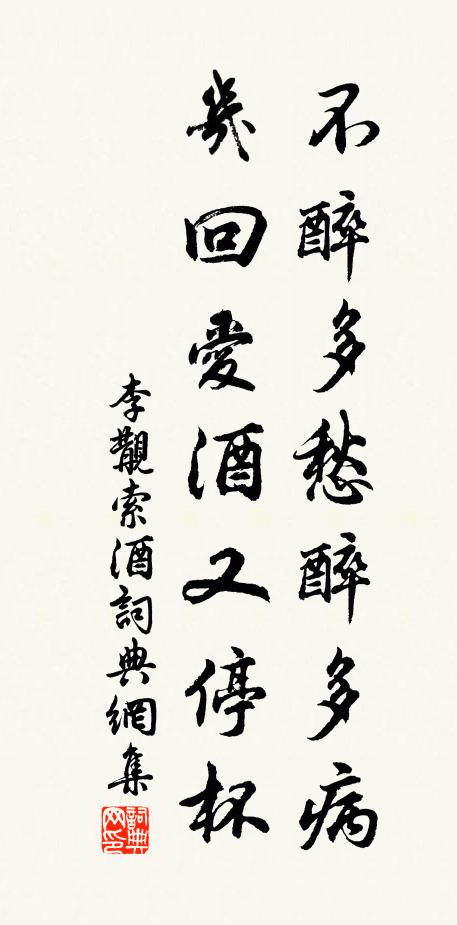 不醉多愁醉多病
幾回愛酒又停杯
李觀索酒詞典網集
詞典
网印